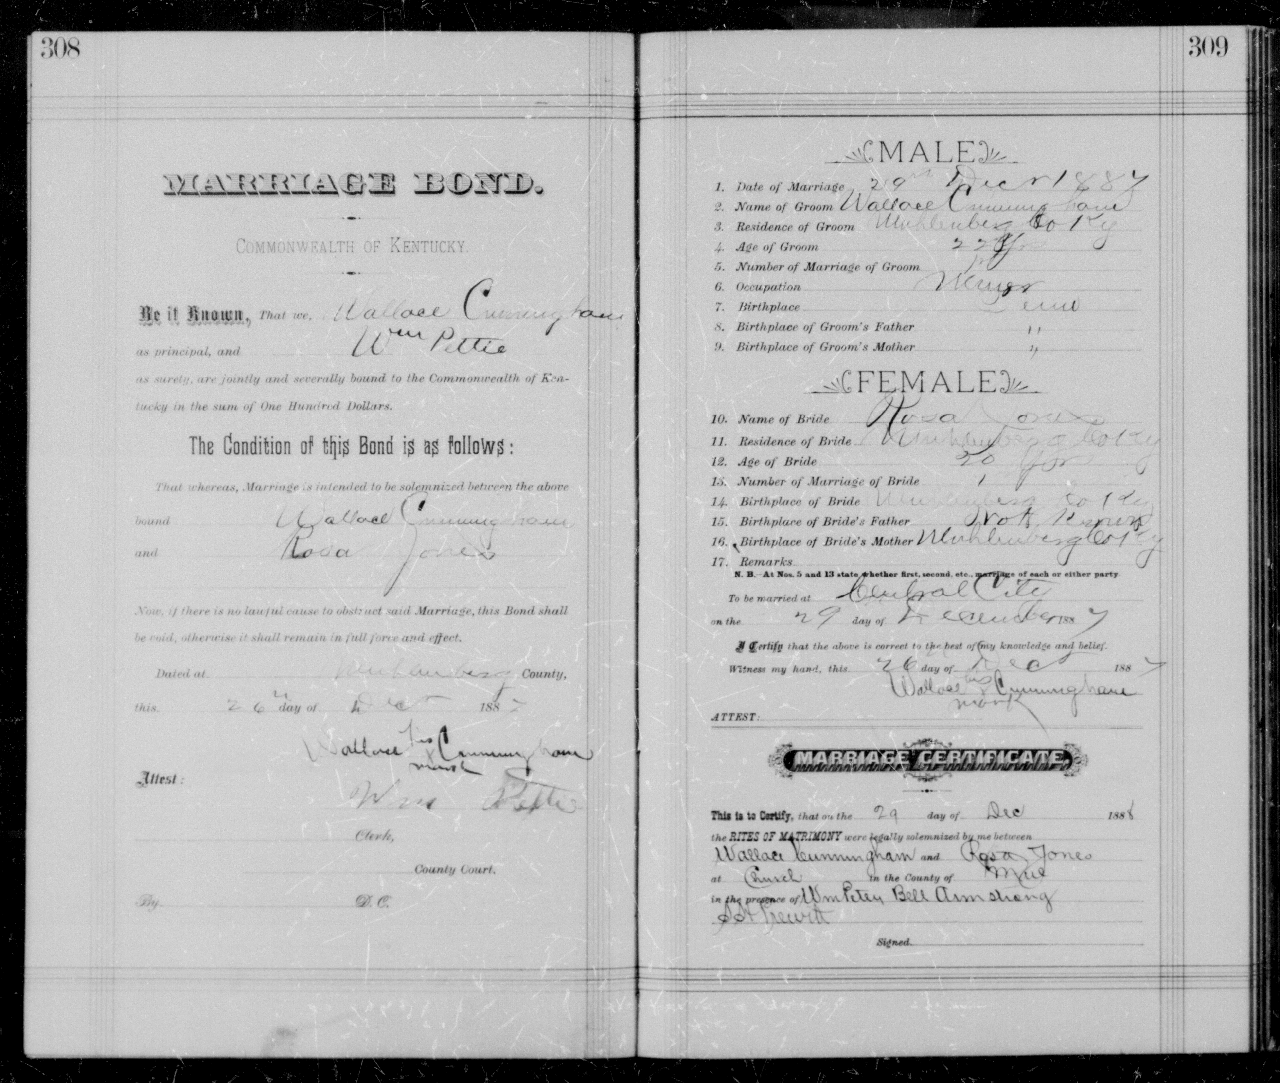 308
MARRIAGE BOND.
COMMONWEALTH OF KENTUCKY.
Be it Known, That we, Wallace Cunningham
as principal, and Wm Pettie
as surety, are jointly and severally bound to the Commonwealth of Ken-
tucky in the sum of One Hundred Dollars.
The Condition of this Bond is as follows:
That whereas, Marriage is intended to be solemnized between the above
bound Wallace Cunningham
and Rosa Jones
Now, if there is no lawful cause to obstruct said Marriage, this Bond shall
be void, otherwise it shall remain in full force and effect.
Dated at Muhlenberg County,
this 26th day of Dect 1887
Wallace his x mark Cunningham
Attest: Wm Pettie
Clerk,
County Court.
By D. C.
309
MALE
1. Date of Marriage 29th Decr 1887
2. Name of Groom Wallace Cunningham
3. Residence of Groom Muhlenberg Co Ky
4. Age of Groom 22 yrs
5. Number of Marriage of Groom
6. Occupation Miner
7. Birthplace Tenn
8. Birthplace of Groom's Father "
9. Birthplace of Groom's Mother "
FEMALE
10. Name of Bride Rosa Jones
11. Residence of Bride Muhlenberg Co Ky
12. Age of Bride 20 yrs
13. Number of Marriage of Bride 1
14. Birthplace of Bride Muhlenberg Co Ky
15. Birthplace of Bride's Father Not Known
16. Birthplace of Bride's Mother Muhlenberg Co Ky
17. Remarks
N. B.—At Nos. 5 and 13 state whether first, second, etc., marriage of each or either party.
To be married at Central City
on the 29 day of December 1887
I Certify that the above is correct to the best of my knowledge and belief.
Witness my hand, this 26 day of Dect 1887
Wallace his x mark Cunningham
ATTEST:
MARRIAGE CERTIFICATE.
This is to Certify, that on the 29 day of Dec 1888
the RITES OF MATRIMONY were legally solemnized by me between
Wallace Cunningham and Rosa Jones
at Church in the County of
in the presence of Wm Petey Bell Armstrong
Prewitt
Signed.